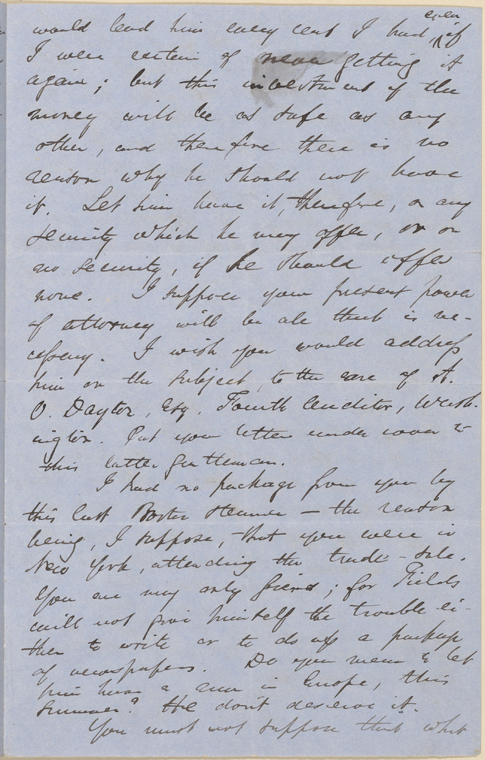 even
would lend him every cent I had ^ if
I were certain of never getting it
again; but this investment of the
money will be as safe as any
other, and therefore there is no
reason why he should not have
it. Let him have it, therefore, on any
security which he may offer, or on
no security, if he should offer
none. I suppose your present power
of attorney will be all that is ne-
cessary. I wish you would address
him on the subject, to the care of A.
O. Dayton, Esq. Fourth Auditor, Wash-
ington. Put your letter under cover to
this latter gentleman.
I had no package from you by
this last Boston steamer — the reason
being, I suppose, that you were in
New York, attending the trade-sale.
You are my only friend; for Fields
will not give himself the trouble ei-
ther to write or to do up a package
of newspapers. Do you mean to let
him have a run in Europe, this
summer? He don't deserve it.
You must not suppose that what